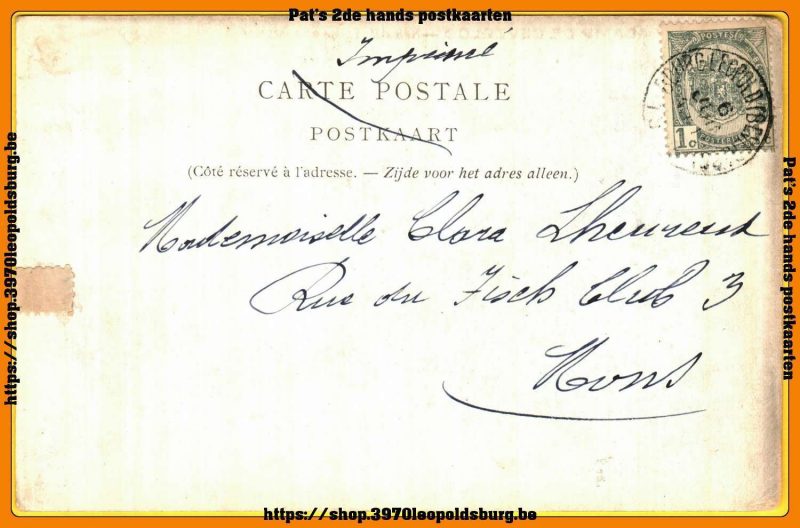 Pat's 2de hands postkaarten
Imprimé
CARTE POSTALE
POSTKAART
(Côté réservé à l'adresse. — Zijde voor het adres alleen.)
POSTES
1c
BOURG-LÉOPOLD
6
Mademoiselle Clara Lheureux
Rue du Fisch Club 3
Mons
https://shop.3970leopoldsburg.be
Pat's 2de hands postkaarten
https://shop.3970leopoldsburg.be